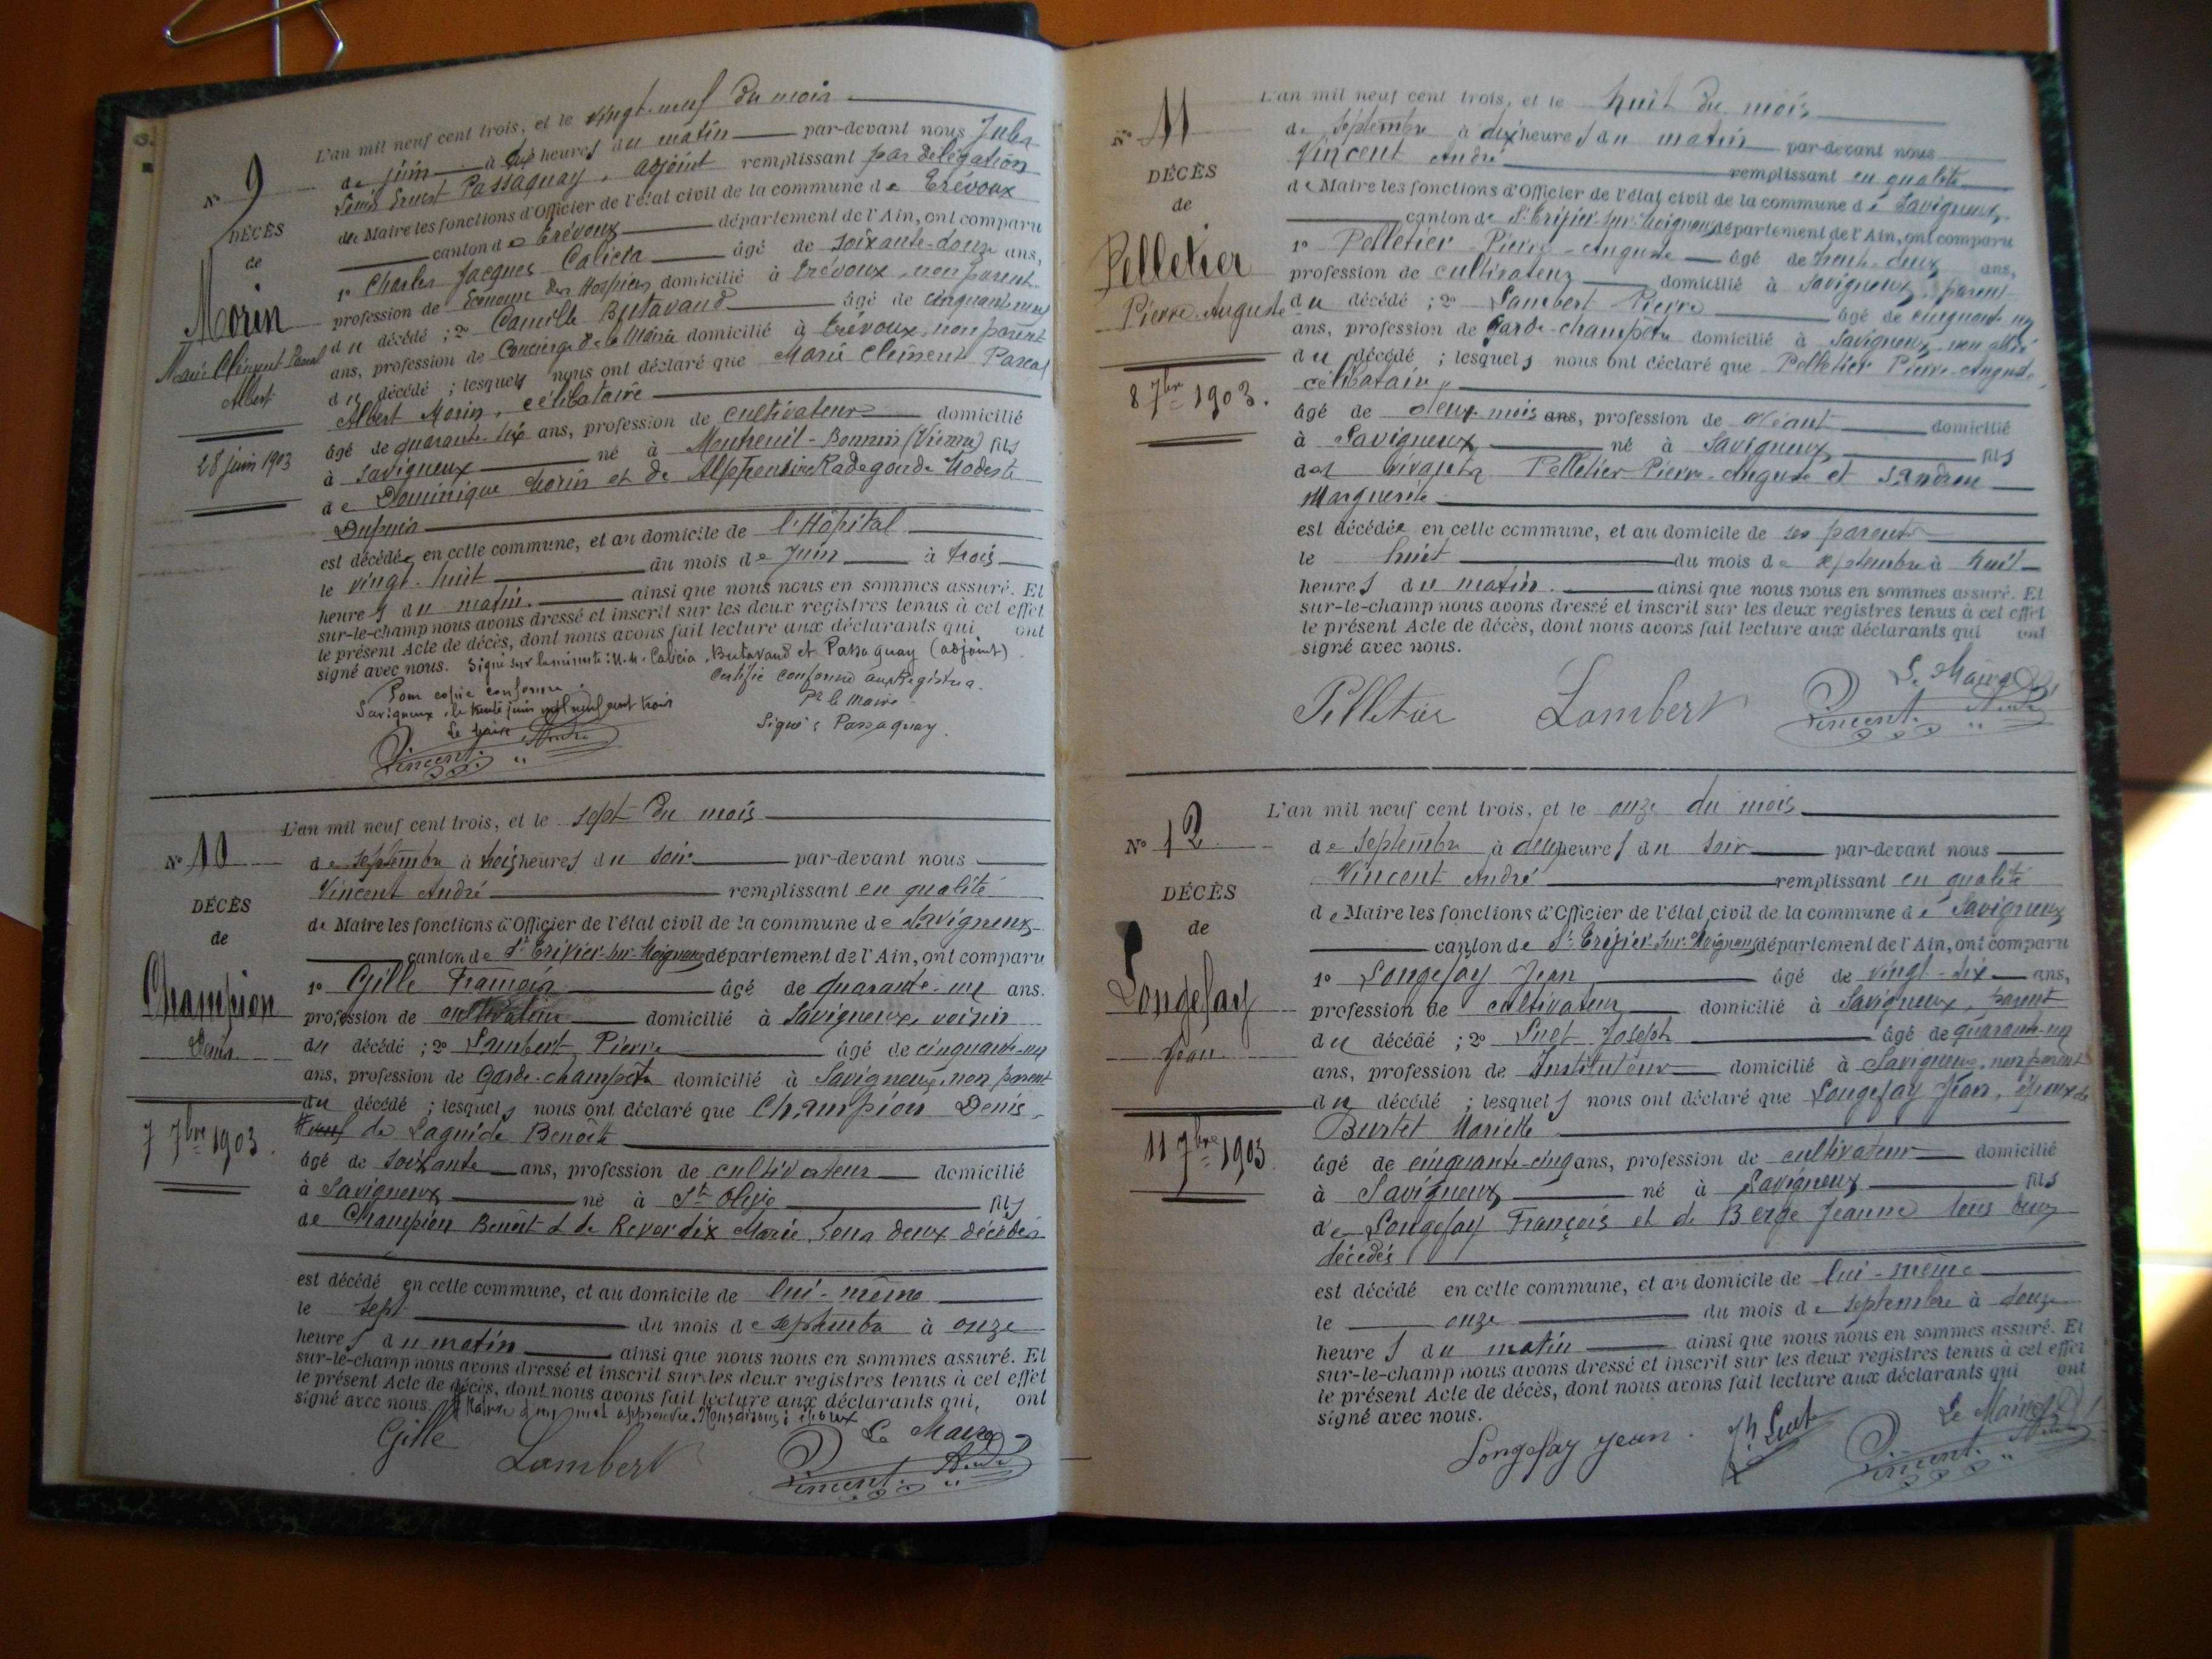 L'an mil neuf cent trois, et le vingt-neuf du mois
de juin à heures du matin par-devant nous Jules
Ernest Passaquay, adjoint remplissant par délégation
du Maire les fonctions d'Officier de l'état civil de la commune de Trévoux
canton de Trévoux département de l'Ain, ont comparu
1º Charles Jacques Calicia âgé de soixante-douze ans,
profession de Econome des Hospices domicilié à Trévoux non parent
du décédé ; 2º Camille Butavand âgé de cinquante neuf
ans, profession de Concierge de la Mairie domicilié à Trévoux, non parent
du décédé ; lesquels nous ont déclaré que Marie Clément Pascal
Albert Morin, célibataire
âgé de quarante-six ans, profession de cultivateur domicilié
à Savigneux né à Montreuil-Bonnin (Vienne) fils
de Dominique Morin et de Alphonsine Radegonde Modeste
Dupuis
est décédé en cette commune, et au domicile de l'Hôpital
le vingt-huit du mois de Juin à trois
heures du matin. ainsi que nous nous en sommes assuré. Et
sur-le-champ nous avons dressé et inscrit sur les deux registres tenus à cet effet
le présent Acte de décès, dont nous avons fait lecture aux déclarants qui ont
signé avec nous. Signé sur la minute : M.M. Calicia, Butavand et Passaquay (adjoint)
Certifié conforme aux Registres.
Pr le Maire
Signé : Passaquay.
Pour copie conforme :
Savigneux, le trente juin mil neuf cent trois
Le Maire
Vincent André
Nº 9
DÉCÈS
de
Morin
Marie Clément Pascal
Albert
28 juin 1903
L'an mil neuf cent trois, et le sept du mois
de septembre à trois heures du soir par-devant nous
Vincent André remplissant en qualité
de Maire les fonctions d'Officier de l'état civil de la commune de Savigneux
canton de St Trivier-sur-Moignans département de l'Ain, ont comparu
1º Gille François âgé de quarante-un ans.
profession de cultivateur domicilié à Savigneux, voisin
du décédé ; 2º Lambert Pierre âgé de cinquante-un
ans, profession de Garde-champêtre domicilié à Savigneux, non parent
du décédé ; lesquels nous ont déclaré que Champion Denis,
de Laguide Benoîte
âgé de soixante ans, profession de cultivateur domicilié
à Savigneux né à Ste Olive fils
de Champion Benoît et de Reverdix Marie, tous deux décédés
est décédé en cette commune, et au domicile de lui-même
le sept du mois de septembre à onze
heures du matin ainsi que nous nous en sommes assuré. Et
sur-le-champ nous avons dressé et inscrit sur les deux registres tenus à cet effet
le présent Acte de décès, dont nous avons fait lecture aux déclarants qui, ont
signé avec nous. d'un mot approuvée. Nous disons : époux
Gille Lambert Le Maire
Vincent André
Nº 10
DÉCÈS
de
Champion
Denis
7 7bre 1903.
L'an mil neuf cent trois, et le huit du mois
de septembre à dix heures du matin par-devant nous
Vincent André remplissant en qualité
de Maire les fonctions d'Officier de l'état civil de la commune de Savigneux,
canton de St Trivier-sur-Moignans département de l'Ain, ont comparu
1º Pelletier Pierre-Auguste âgé de trente-deux ans,
profession de cultivateur domicilié à Savigneux, parent
du décédé ; 2º Lambert Pierre âgé de cinquante-un
ans, profession de Garde-champêtre domicilié à Savigneux, non allié
du décédé ; lesquels nous ont déclaré que Pelletier Pierre-Auguste,
célibataire,
âgé de deux mois ans, profession de Néant domicilié
à Savigneux né à Savigneux fils
des vivants Pelletier Pierre-Auguste et
Marguerite
est décédé en cette commune, et au domicile de ses parents
le huit du mois de septembre à huit
heures du matin. ainsi que nous nous en sommes assuré. Et
sur-le-champ nous avons dressé et inscrit sur les deux registres tenus à cet effet
le présent Acte de décès, dont nous avons fait lecture aux déclarants qui ont
signé avec nous.
Pelletier Lambert Le Maire
Vincent André
Nº 11
DÉCÈS
de
Pelletier
Pierre-Auguste
8 7bre 1903.
L'an mil neuf cent trois, et le onze du mois
de septembre à deux heures du soir par-devant nous
Vincent André remplissant en qualité
de Maire les fonctions d'Officier de l'état civil de la commune de Savigneux
canton de St Trivier-sur-Moignans département de l'Ain, ont comparu
1º Longefay Jean âgé de vingt-six ans,
profession de cultivateur domicilié à Savigneux, parent
du décédé ; 2º Suet Joseph âgé de quarante-un
ans, profession de Instituteur domicilié à Savigneux, non parent
du décédé ; lesquels nous ont déclaré que Longefay Jean, époux de
Burtet Mariette
âgé de cinquante-cinq ans, profession de cultivateur domicilié
à Savigneux né à Savigneux fils
de Longefay François et de Berge Jeanne tous deux
décédés
est décédé en cette commune, et au domicile de lui-même
le onze du mois de septembre à onze
heures du matin ainsi que nous nous en sommes assuré. Et
sur-le-champ nous avons dressé et inscrit sur les deux registres tenus à cet effet
le présent Acte de décès, dont nous avons fait lecture aux déclarants qui ont
signé avec nous.
Longefay Jean. Jh Suet Le Maire
Vincent André
Nº 12
DÉCÈS
de
Longefay
Jean
11 7bre 1903